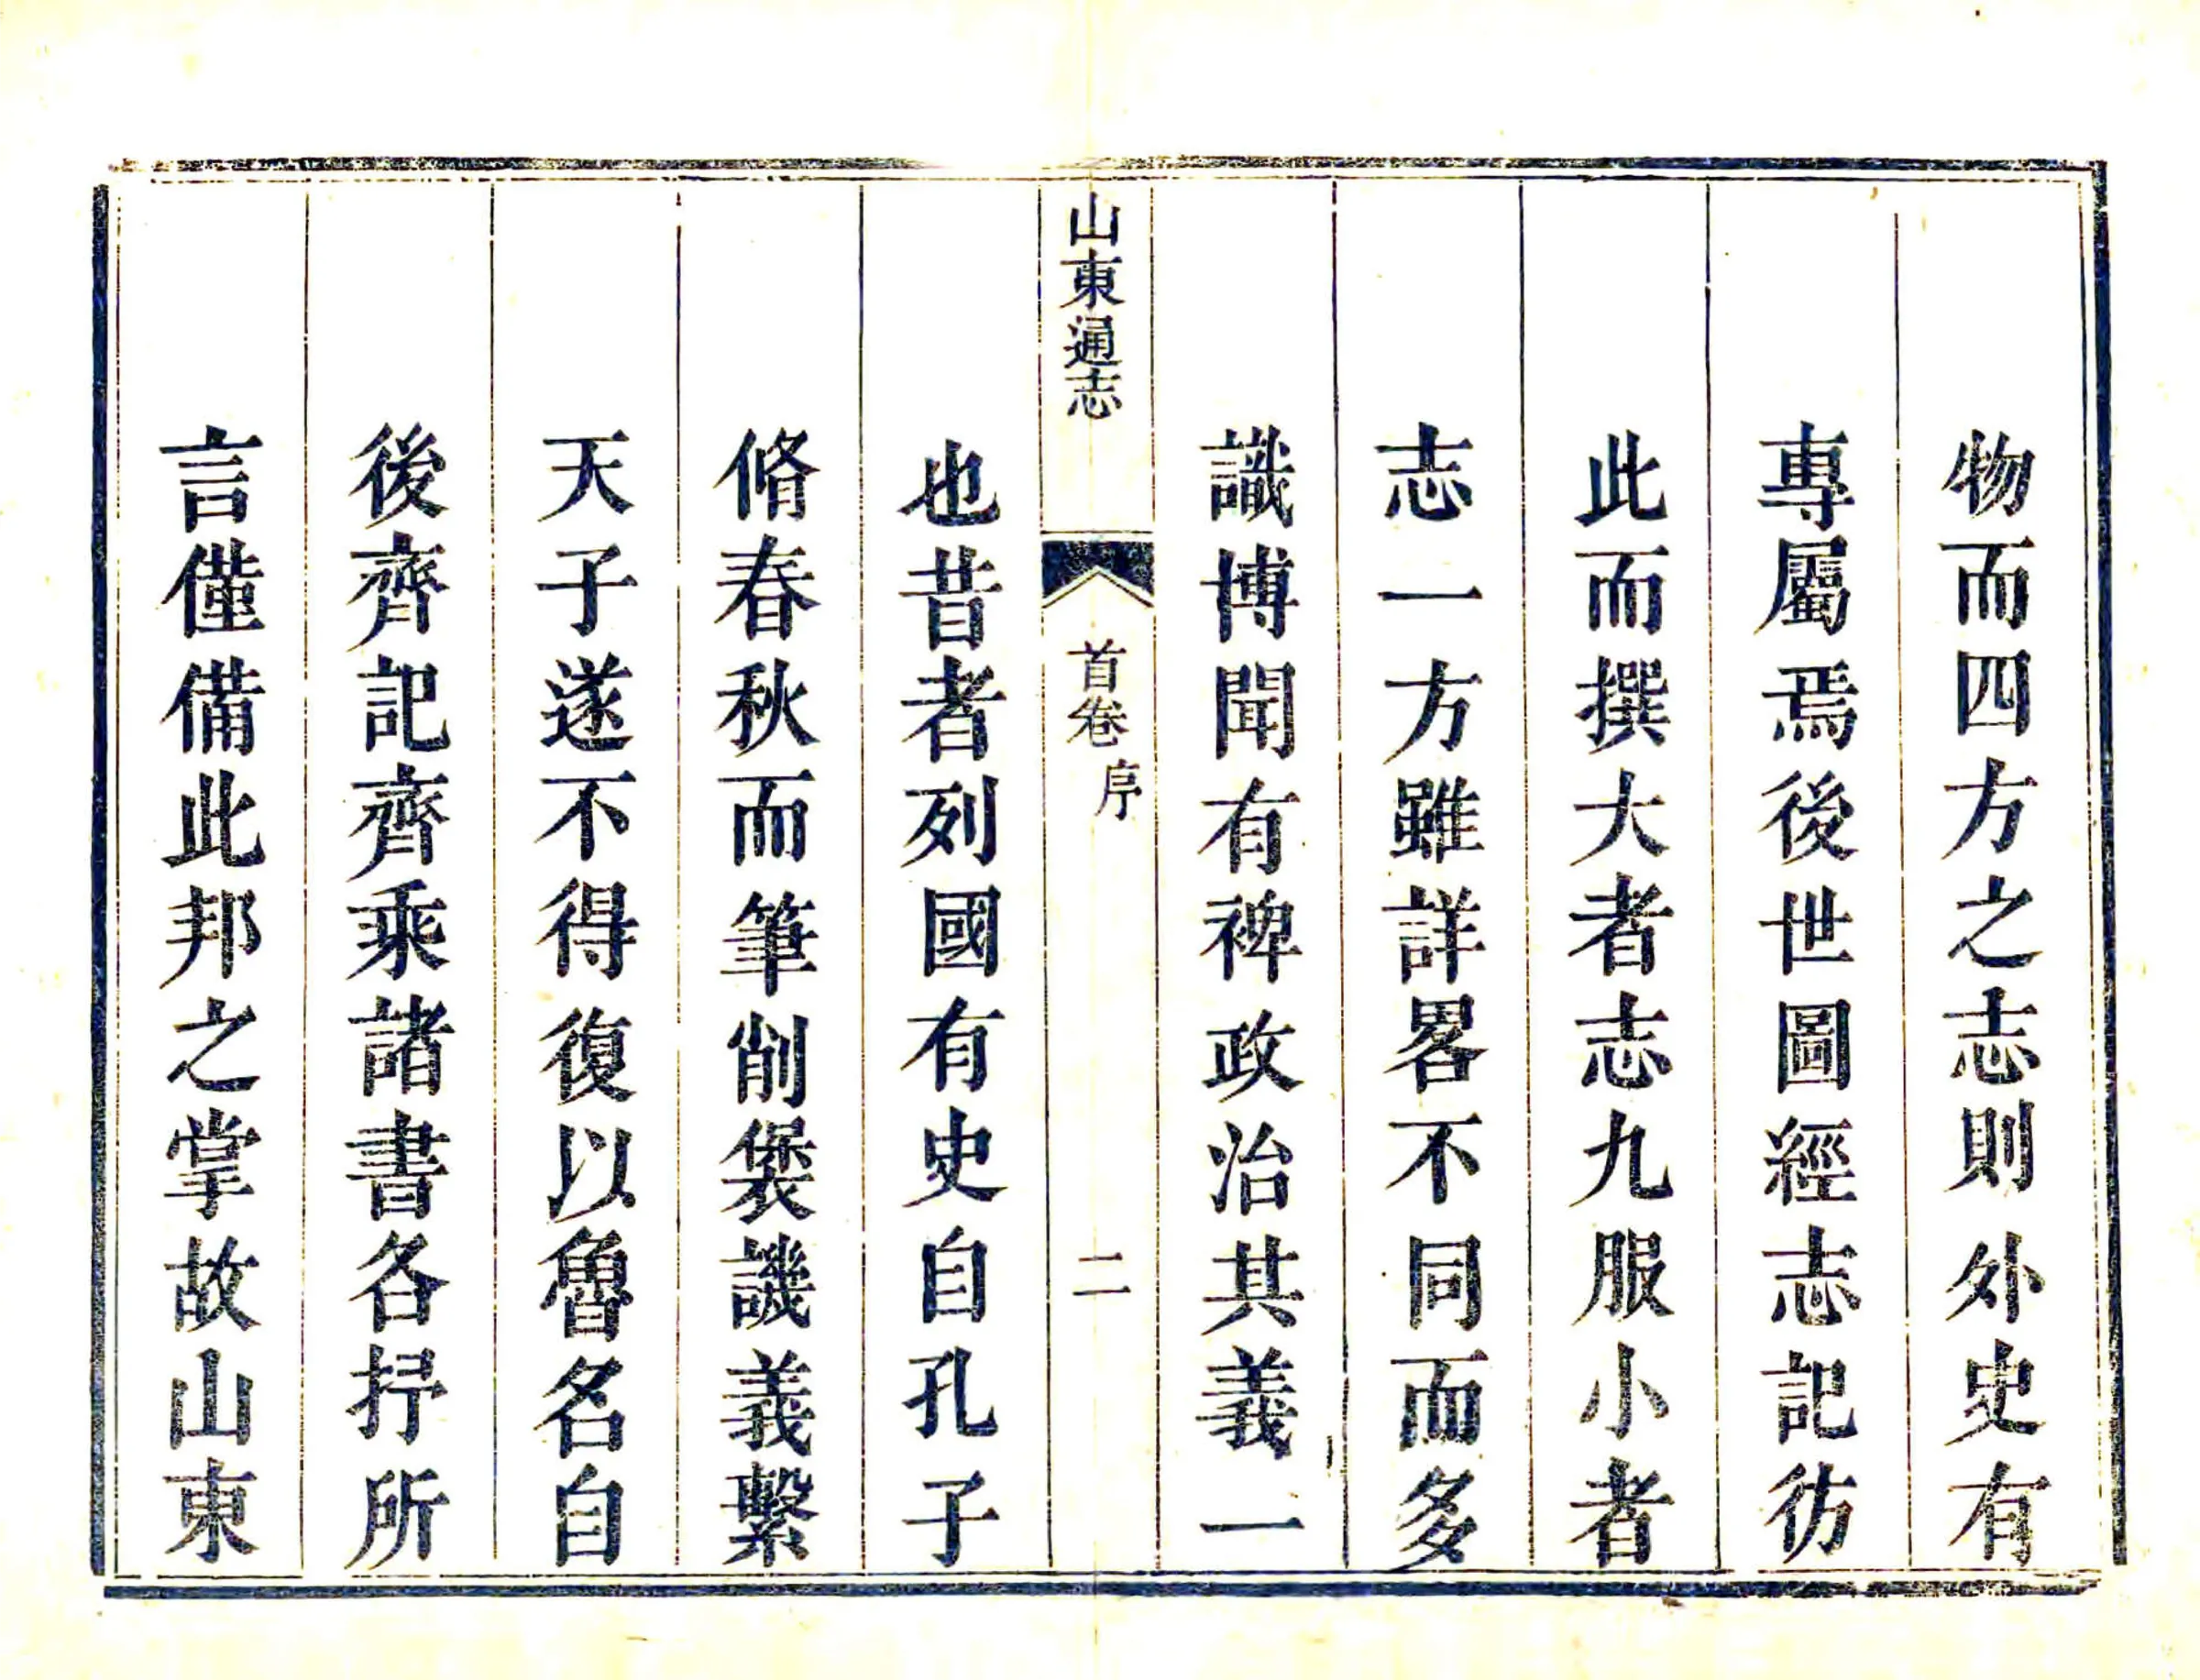 物而四方之志則外史有
專屬焉後世圖經志記彷
此而撰大者志九服小者
志一方雖詳畧不同而多
識博聞有裨政治其義一
山東通志
首卷
序
二
也昔者列國有史自孔子
脩春秋而筆削襃譏義繫
天子遂不得復以魯名自
後齊記齊乘諸書各抒所
言僅備此邦之掌故山東